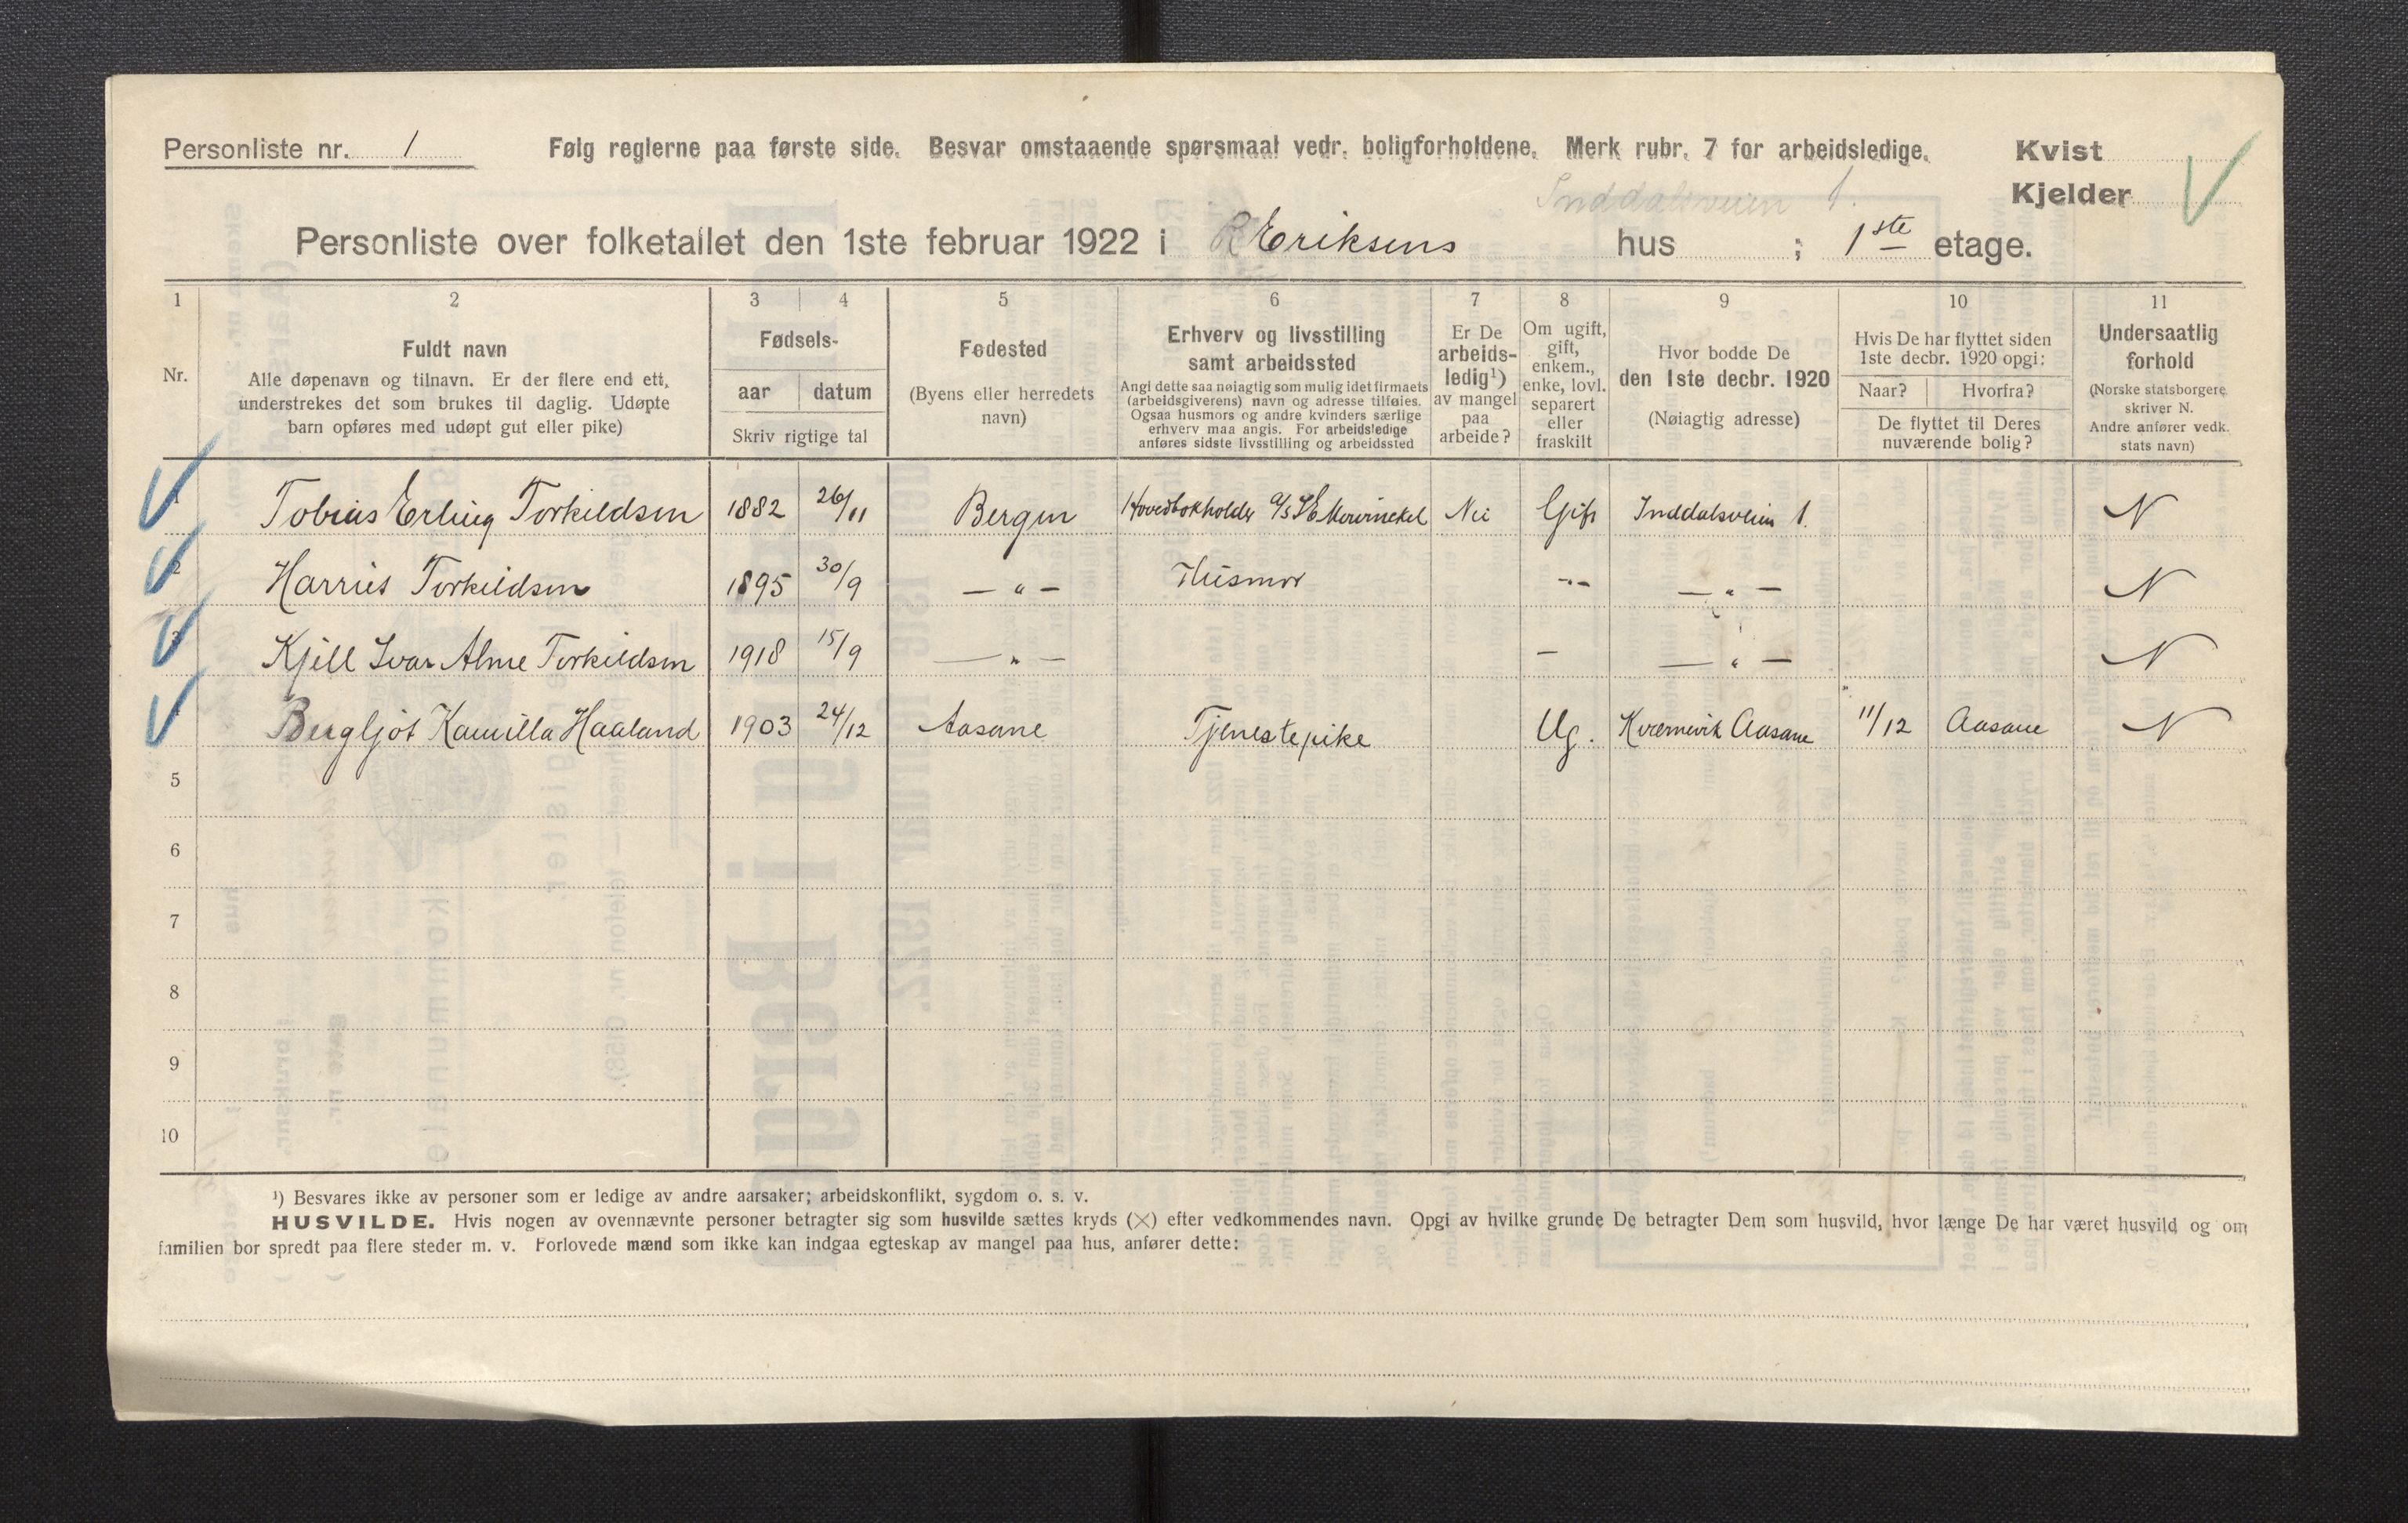 Personliste nr. 1 Følg reglerne paa første side. Besvar omstaaende spørsmaal vedr. boligforholdene. Merk rubr. 7 for arbeidsledige. Kvist
Kjelder
Inddalsveien 1.
Personliste over folketallet den 1ste februar 1922 i R Eriksens hus ; 1ste etage.
1 2 3 4 5 6 7 8 9 10 11
Nr.
Fuldt navn
Alle døpenavn og tilnavn. Er der flere end ett,
understrekes det som brukes til daglig. Udøpte
barn opføres med udøpt gut eller pike)
Fødsels-
aar datum
Skriv rigtige tal
Fødested
(Byens eller herredets
navn)
Erhverv og livsstilling
samt arbeidssted
Angi dette saa nøiagtig som mulig idet firmaets
(arbeidsgiverens) navn og adresse tilføies.
Ogsaa husmors og andre kvinders særlige
erhverv maa angis. For arbeidsledige
anføres sidste livsstilling og arbeidssted
Er De
arbeids-
ledig¹)
av mangel
paa
arbeide?
Om ugift,
gift,
enkem.,
enke, lovl.
separert
eller
fraskilt
Hvor bodde De
den 1ste decbr. 1920
(Nøiagtig adresse)
Hvis De har flyttet siden
1ste decbr. 1920 opgi:
Naar? Hvorfra?
De flyttet til Deres
nuværende bolig?
Undersaatlig
forhold
(Norske statsborgere
skriver N.
Andre anfører vedk.
stats navn)
1 Tobias Erling Torkildsen 1882 26/11 Bergen Hovedbokholder a/s Nei Gift Inddalsveien 1. N
2 Harriis Torkildsen 1895 30/9 — " — Husmor -"- — " — N
3 Kjell Ivar Alme Torkildsen 1918 15/9 — " — — — " — N
4 Bergljot Kamilla Haaland 1903 24/12 Aasane Tjenestepike Ug. Kvernevik Aasane 11/12 Aasane N
5
6
7
8
9
10
¹) Besvares ikke av personer som er ledige av andre aarsaker; arbeidskonflikt, sygdom o. s. v.
HUSVILDE. Hvis nogen av ovennævnte personer betragter sig som husvilde sættes kryds (×) efter vedkommendes navn. Opgi av hvilke grunde De betragter Dem som husvild, hvor længe De har været husvild og om
familien bor spredt paa flere steder m. v. Forlovede mænd som ikke kan indgaa egteskap av mangel paa hus, anfører dette: